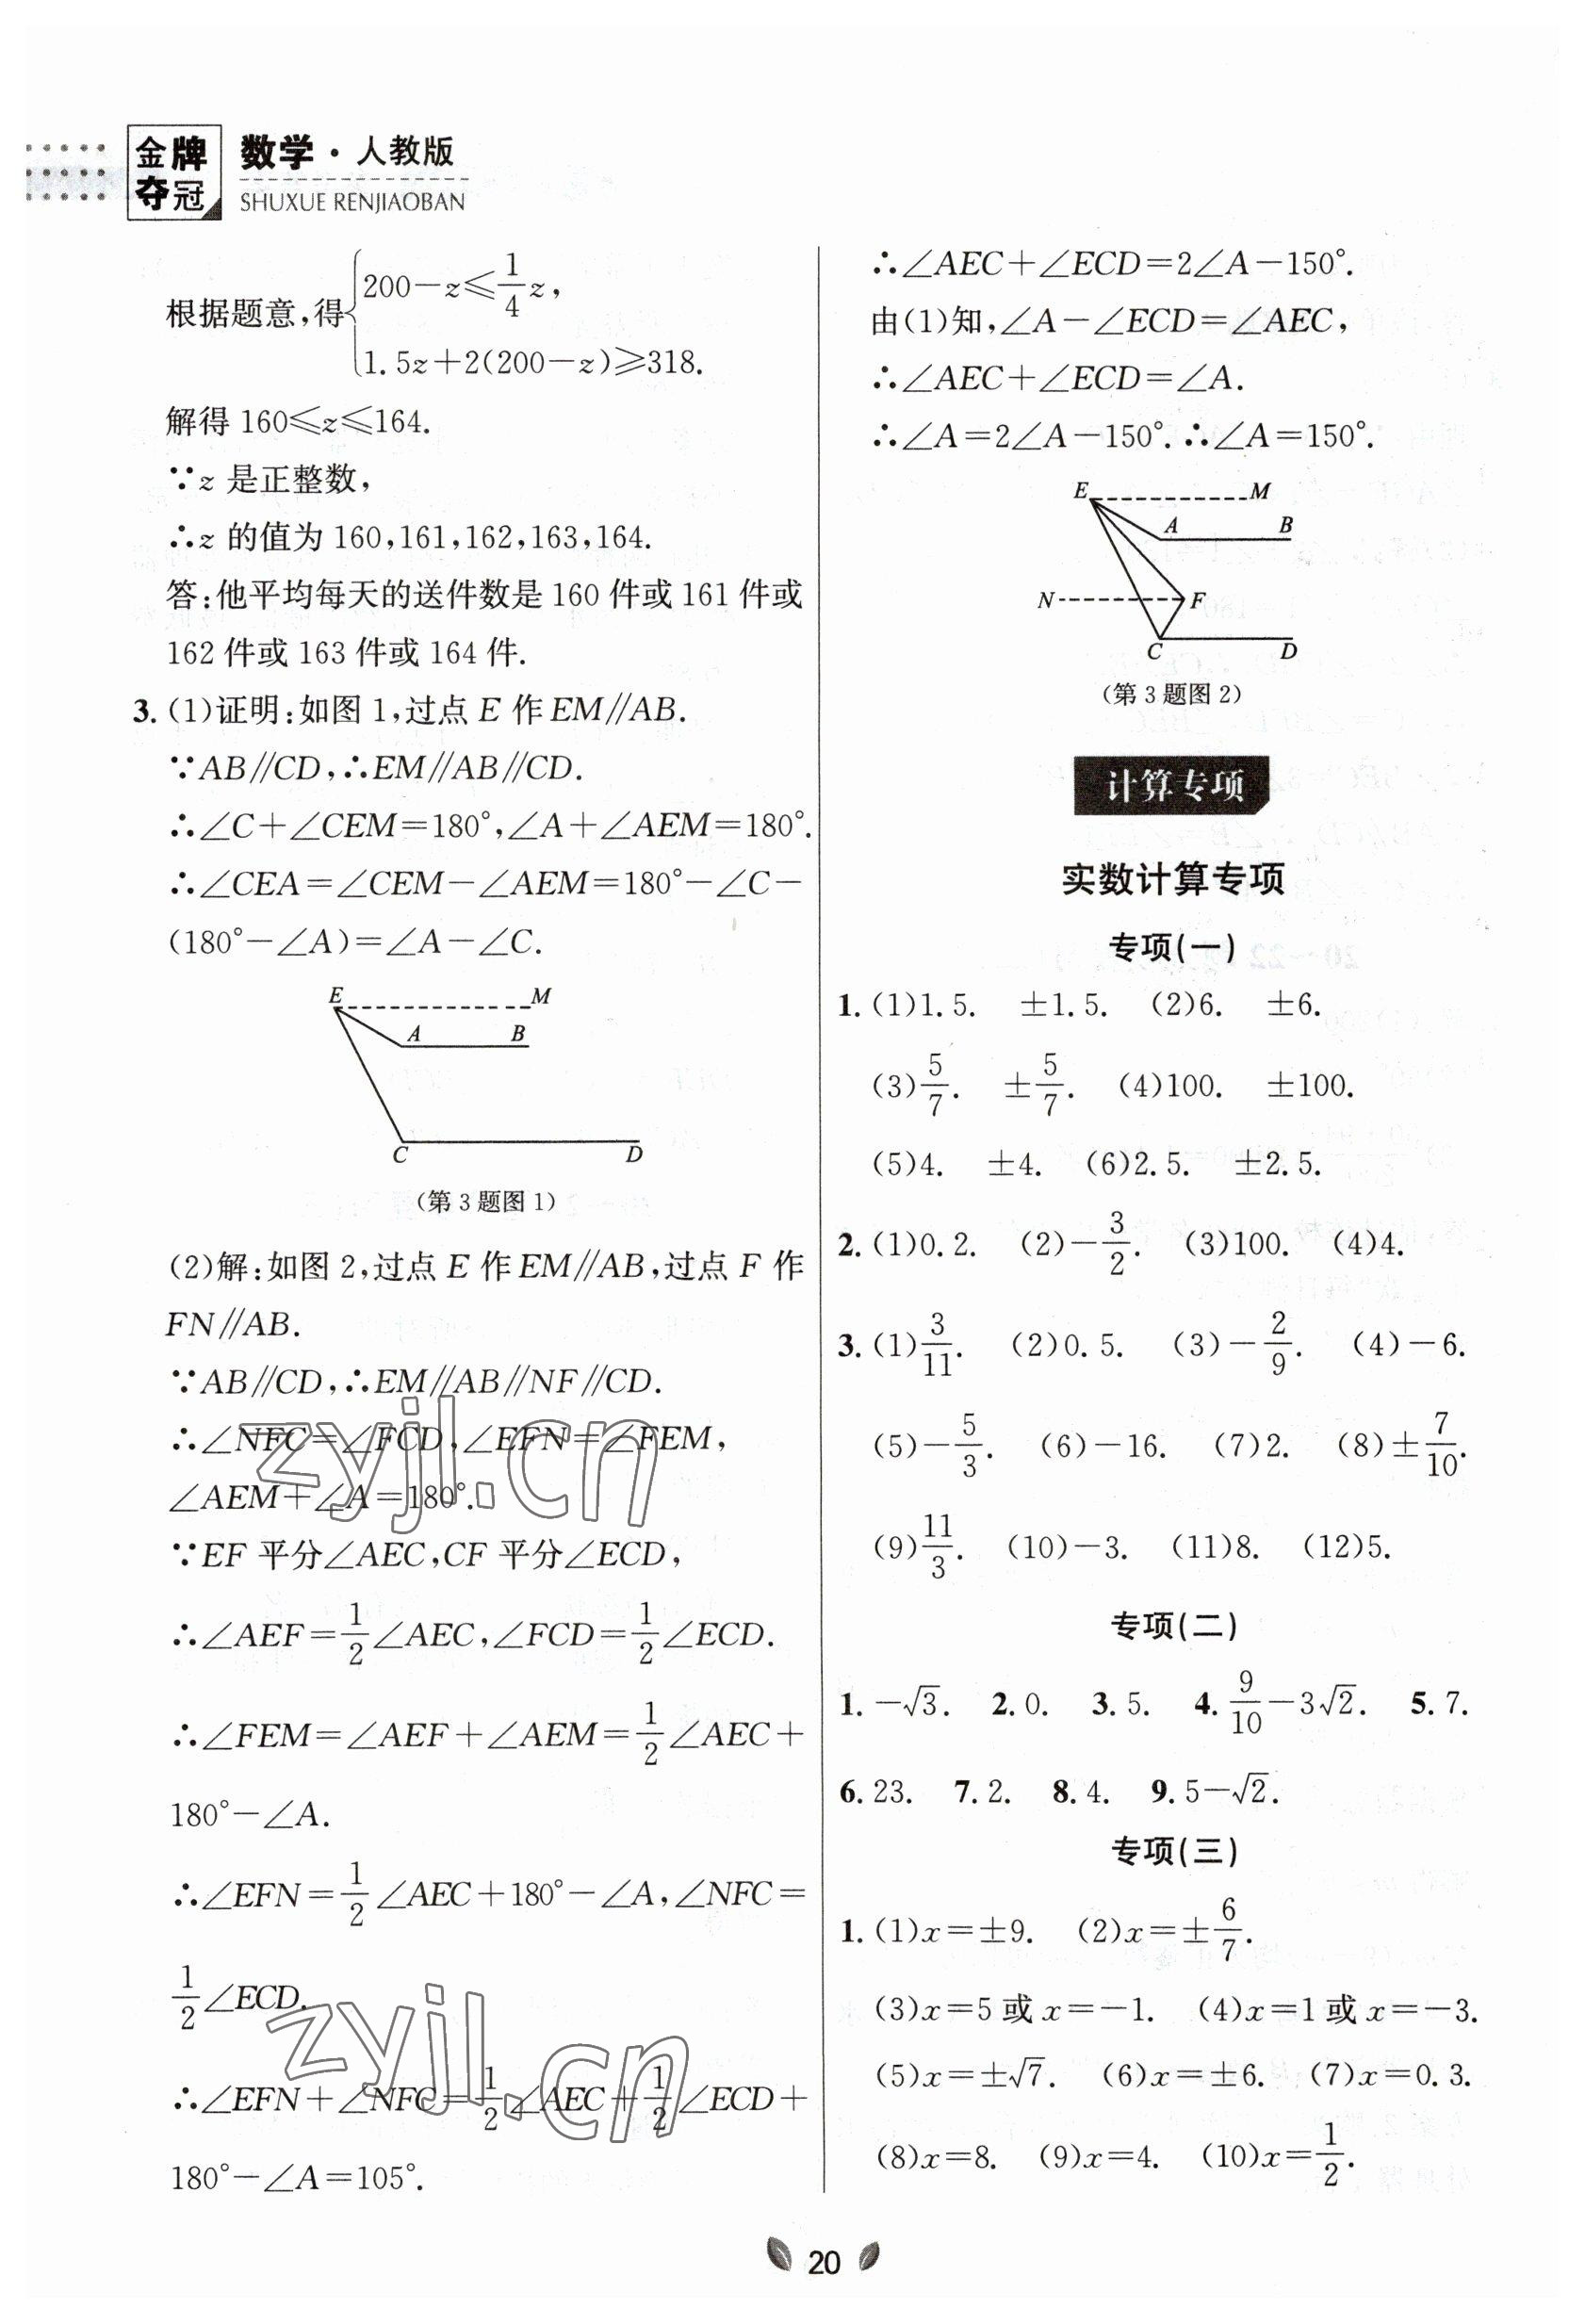 金牌
夺冠
数学·人教版
SHUXUE RENJIAOBAN
根据题意,得{200－z≤1/4 z,
1.5z＋2(200－z)≥318.
解得 160≤z≤164.
∵z 是正整数,
∴z 的值为 160,161,162,163,164.
答:他平均每天的送件数是 160 件或 161 件或
162 件或 163 件或 164 件.
3. (1)证明:如图 1,过点 E 作 EM∥AB.
∵AB∥CD,∴EM∥AB∥CD.
∴∠C＋∠CEM＝180°,∠A＋∠AEM＝180°.
∴∠CEA＝∠CEM－∠AEM＝180°－∠C－
(180°－∠A)＝∠A－∠C.
E M
A B
C D
(第 3 题图 1)
(2)解:如图 2,过点 E 作 EM∥AB,过点 F 作
FN∥AB.
∵AB∥CD,∴EM∥AB∥NF∥CD.
∴∠NFC＝∠FCD,∠EFN＝∠FEM,
∠AEM＋∠A＝180°.
∵EF 平分∠AEC,CF 平分∠ECD,
∴∠AEF＝1/2∠AEC,∠FCD＝1/2∠ECD.
∴∠FEM＝∠AEF＋∠AEM＝1/2∠AEC＋
180°－∠A.
∴∠EFN＝1/2∠AEC＋180°－∠A,∠NFC＝
1/2∠ECD.
∴∠EFN＋∠NFC＝1/2∠AEC＋1/2∠ECD＋
180°－∠A＝105°.
zyjl.cn
zyjl.cn
∴∠AEC＋∠ECD＝2∠A－150°.
由(1)知,∠A－∠ECD＝∠AEC,
∴∠AEC＋∠ECD＝∠A.
∴∠A＝2∠A－150°.∴∠A＝150°.
E M
A B
N F
C D
(第 3 题图 2)
计算专项
实数计算专项
专项(一)
1. (1)1.5. ±1.5. (2)6. ±6.
(3)5/7. ±5/7. (4)100. ±100.
(5)4. ±4. (6)2.5. ±2.5.
2. (1)0.2. (2)－3/2. (3)100. (4)4.
3. (1)3/11. (2)0.5. (3)－2/9. (4)－6.
(5)－5/3. (6)－16. (7)2. (8)±7/10.
(9)11/3. (10)－3. (11)8. (12)5.
专项(二)
1. －√3. 2. 0. 3. 5. 4. 9/10－3√2. 5. 7.
6. 23. 7. 2. 8. 4. 9. 5－√2.
专项(三)
1. (1)x＝±9. (2)x＝±6/7.
(3)x＝5 或 x＝－1. (4)x＝1 或 x＝－3.
(5)x＝±√7. (6)x＝±6. (7)x＝0.3.
(8)x＝8. (9)x＝4. (10)x＝1/2.
20